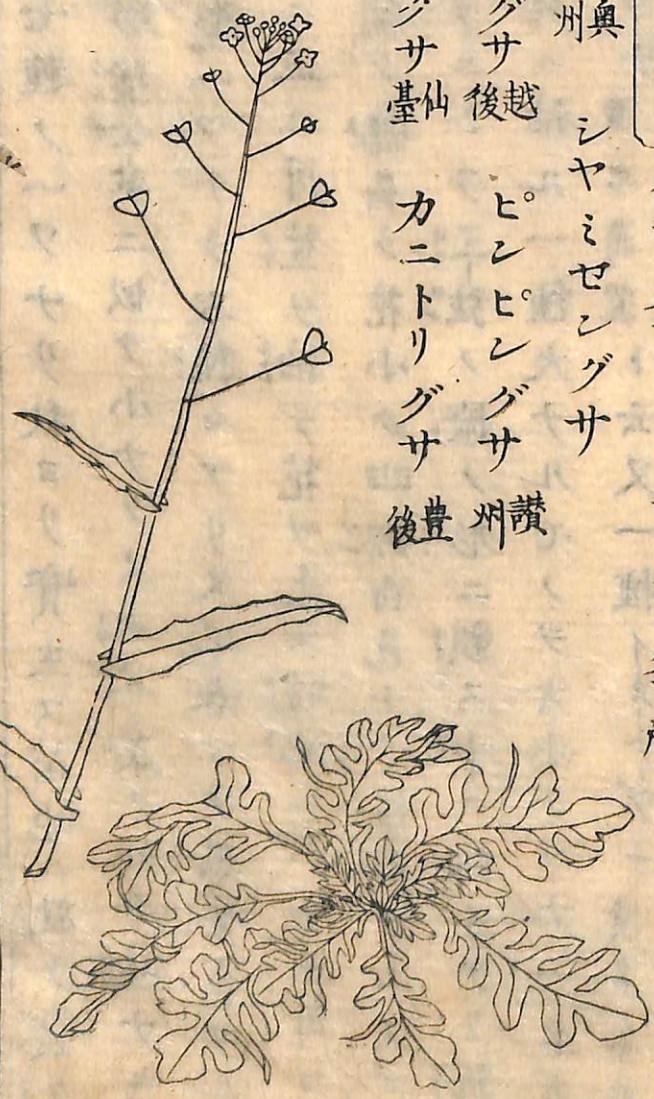 奥州
シヤミセングサ
グサ 越後
ピンピングサ 讃州
グサ 仙臺
カニトリグサ 豊後